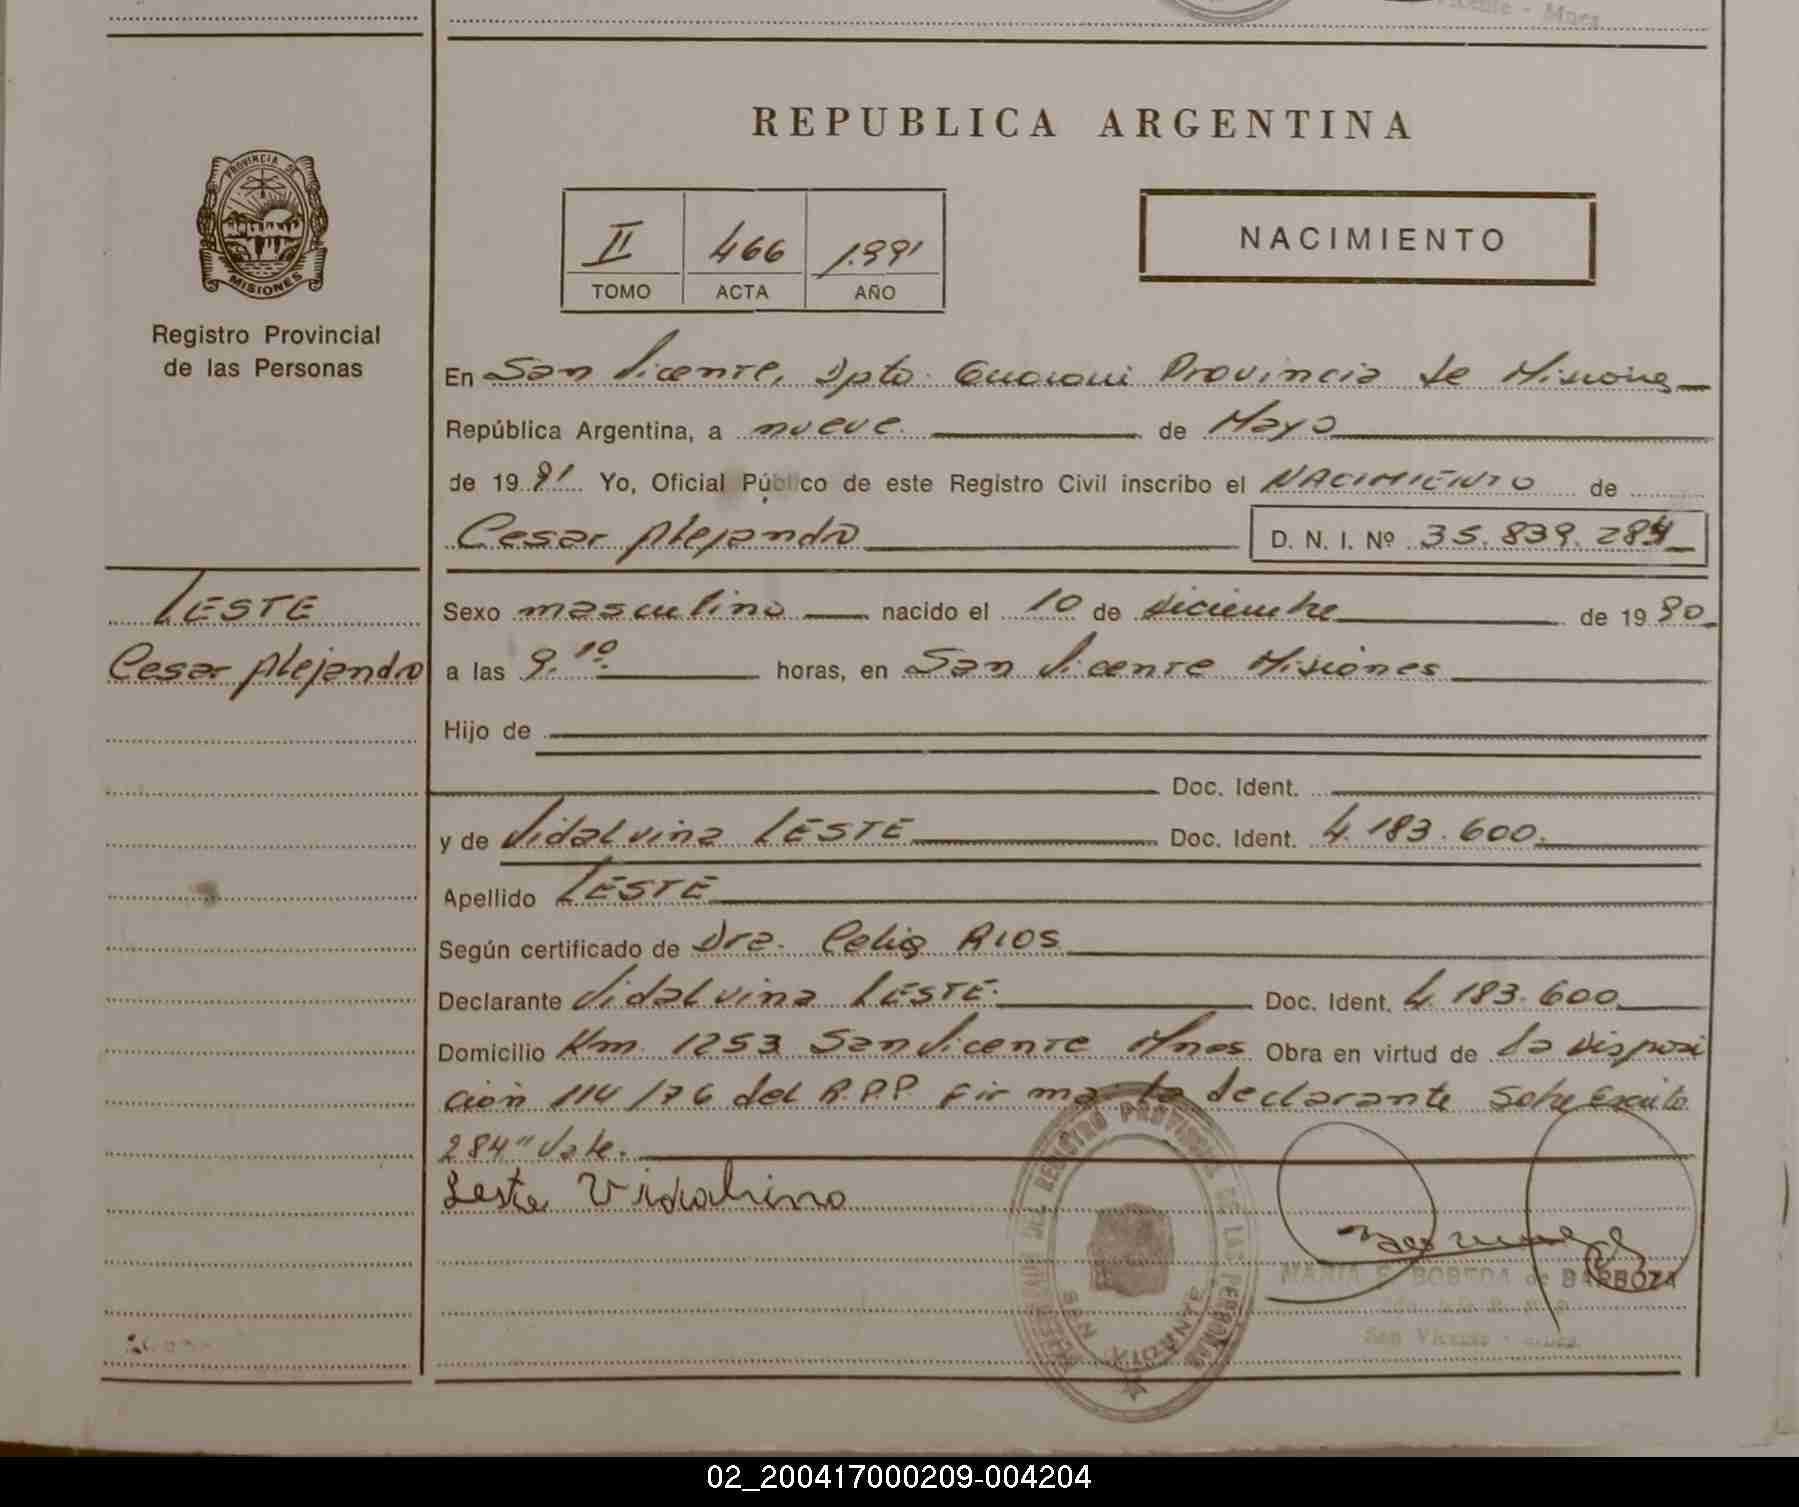 Vicente - Mnes
REPUBLICA ARGENTINA
PROVINCIA DE
MISIONES
Registro Provincial
de las Personas
II 466 1.991
TOMO ACTA AÑO
NACIMIENTO
En San Vicente, Dpto. Guarani Provincia de Misiones
República Argentina, a nueve. de Mayo
de 1991 Yo, Oficial Público de este Registro Civil inscribo el NACIMIENTO de
Cesar Alejandro D. N. I. Nº 35.839.284
LESTE
Cesar Alejandro
Sexo masculino nacido el 10 de diciembre de 1990
a las 9.10 horas, en San Vicente Misiones
Hijo de
Doc. Ident.
y de Vidalvina LESTE Doc. Ident. 4.183.600.
Apellido LESTE
Según certificado de Dra. Celia RIOS
Declarante Vidalvina LESTE. Doc. Ident. 4.183.600
Domicilio Km. 1253 San Vicente Mnes Obra en virtud de la disposi
ción 114/76 del R.P.P. Firma la declarante Sobre Escrito
284" Vale.
Leste Vidalvina
REGISTRO PROVINCIAL DE LAS PERSONAS
SAN VICENTE
MARIA E. BOBEDA de BARBOZA
San Vicente - Mnes.
02_200417000209-004204